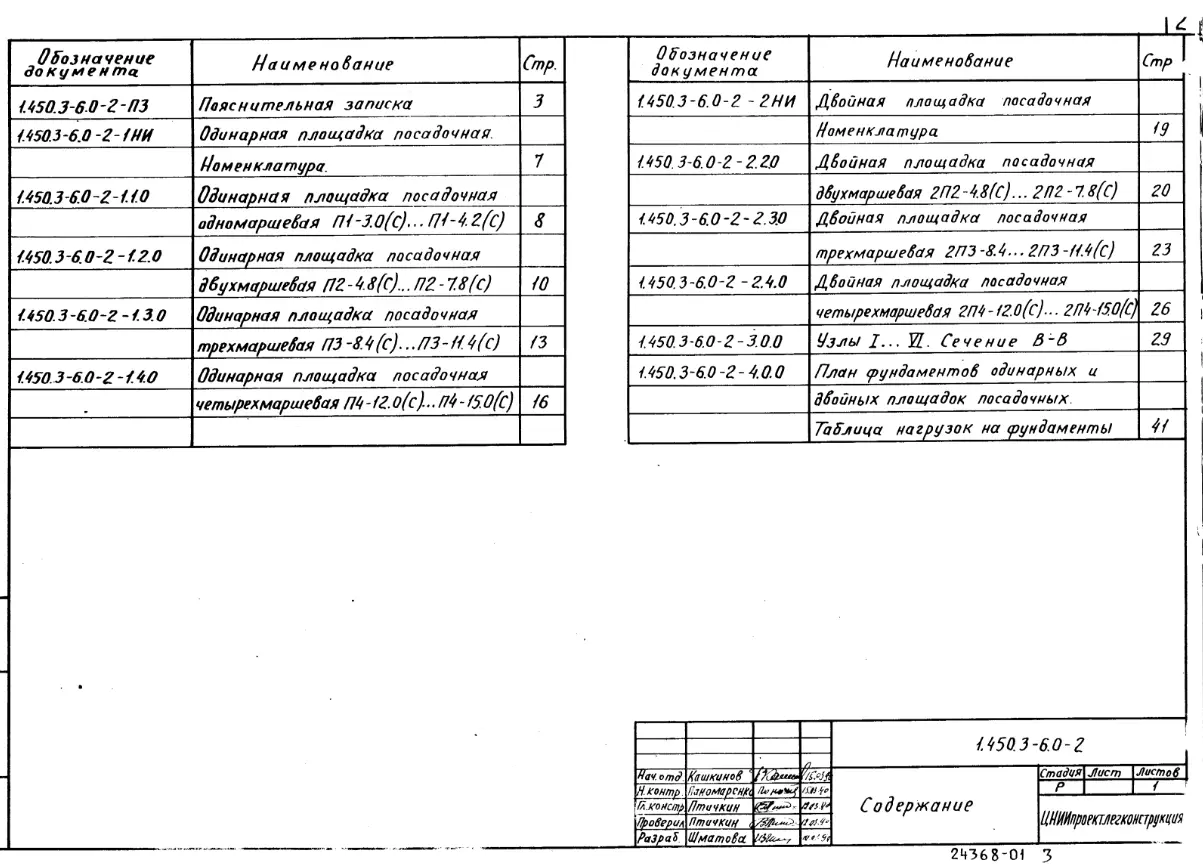 2
Обозначение документа Наименование Стр.
1.450.3-6.0-2-ПЗ Пояснительная записка 3
1.450.3-6.0-2-1НИ Одинарная площадка посадочная.
Номенклатура. 7
1.450.3-6.0-2-1.1.0 Одинарная площадка посадочная
одномаршевая П1-3.0(С)...П1-4.2(С) 8
1.450.3-6.0-2-1.2.0 Одинарная площадка посадочная
двухмаршевая П2-4.8(С)...П2-7.8(С) 10
1.450.3-6.0-2-1.3.0 Одинарная площадка посадочная
трехмаршевая П3-8.4(С)...П3-11.4(С) 13
1.450.3-6.0-2-1.4.0 Одинарная площадка посадочная
четырехмаршевая П4-12.0(С)...П4-15.0(С) 16
Обозначение документа Наименование Стр
1.450.3-6.0-2-2НИ Двойная площадка посадочная
Номенклатура 19
1.450.3-6.0-2-2.2.0 Двойная площадка посадочная
двухмаршевая 2П2-4.8(С)...2П2-7.8(С) 20
1.450.3-6.0-2-2.3.0 Двойная площадка посадочная
трехмаршевая 2П3-8.4...2П3-11.4(С) 23
1.450.3-6.0-2-2.4.0 Двойная площадка посадочная
четырехмаршевая 2П4-12.0(С)...2П4-15.0(С) 26
1.450.3-6.0-2-3.0.0 Узлы I...VI. Сечение В-В 29
1.450.3-6.0-2-4.0.0 План фундаментов одинарных и
двойных площадок посадочных.
Таблица нагрузок на фундаменты 41
1.450.3-6.0-2
Нач.отд Кашкинов
Н.контр. Паномаренко
Гл.констр Птичкин
Проверил Птичкин
Разраб. Шматова
Содержание
Стадия Лист Листов
Р 1
ЦНИИпроектлегконструкция
24368-01 3